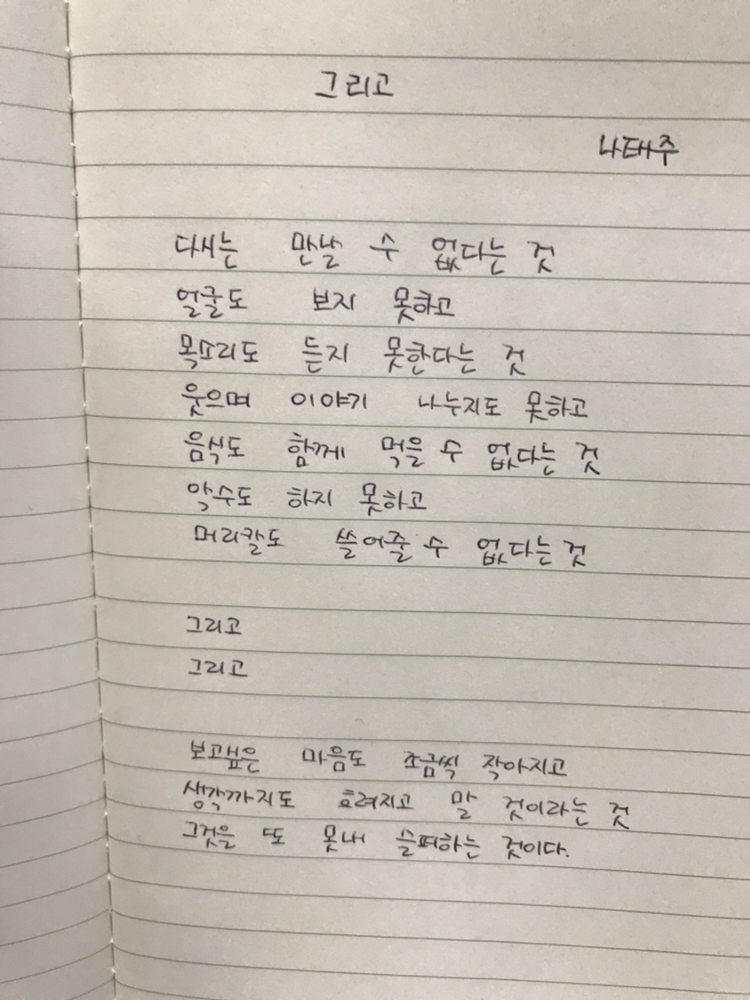 그리고
나태주
다시는 만날 수 없다는 것
얼굴도 보지 못하고
목소리도 듣지 못한다는 것
웃으며 이야기 나누지도 못하고
음식도 함께 먹을 수 없다는 것
악수도 하지 못하고
머리칼도 쓸어줄 수 없다는 것
그리고
그리고
보고싶은 마음도 조금씩 작아지고
생각까지도 흐려지고 말 것이라는 것
그것을 또 못내 슬퍼하는 것이다.